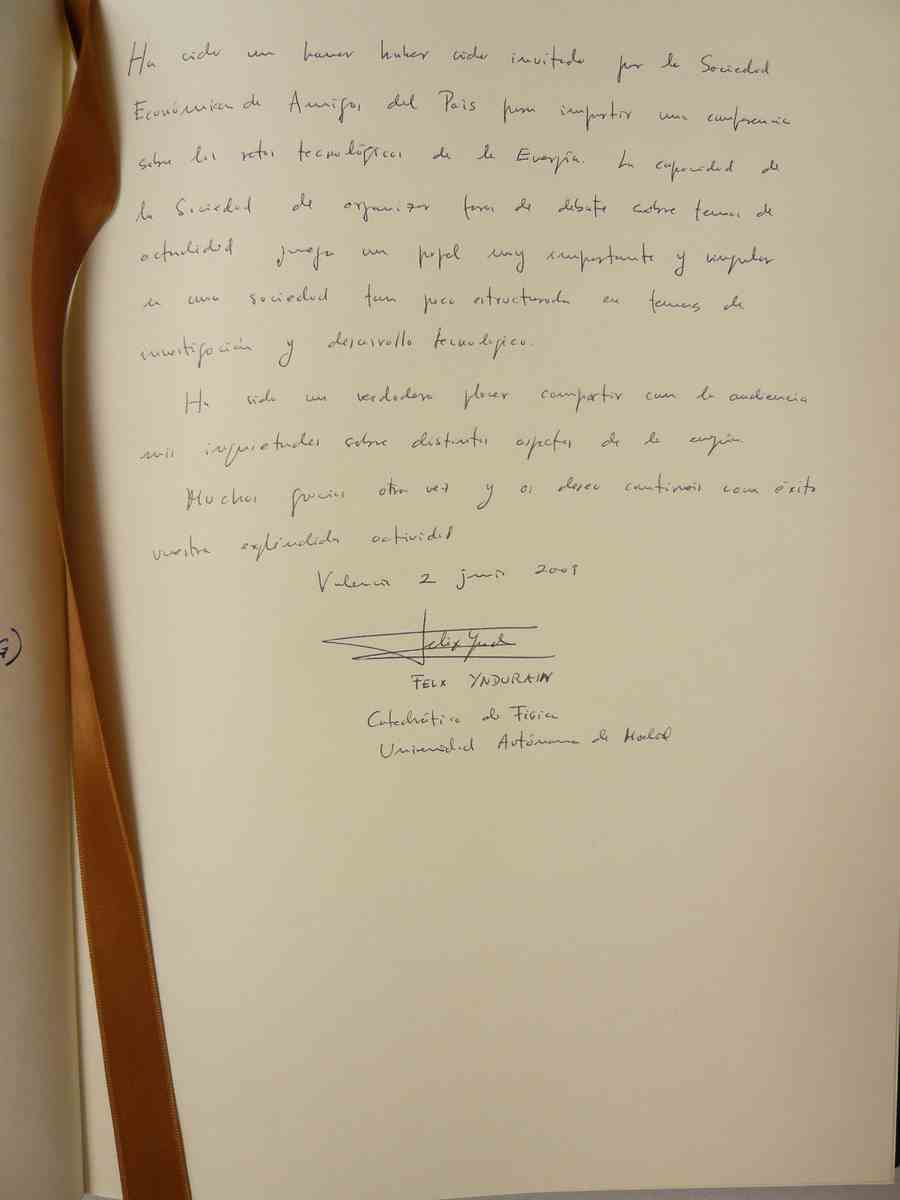 Ha sido un honor haber sido invitado por la Sociedad
Económica de Amigos del País para impartir una conferencia
sobre los retos tecnológicos de la Energía. La capacidad de
la Sociedad de organizar foros de debate sobre temas de
actualidad juega un papel muy importante y singular
en una sociedad tan poco estructurada en temas de
investigación y desarrollo tecnológico.
Ha sido un verdadero placer compartir con la audiencia
mis inquietudes sobre distintos aspectos de la energía
Muchas gracias otra vez y os deseo continueis con éxito
vuestra expléndida actividad
Valencia 2 junio 2009
Felix Ynduráin
FELIX YNDURAIN
Catedrático de Física
Universidad Autónoma de Madrid